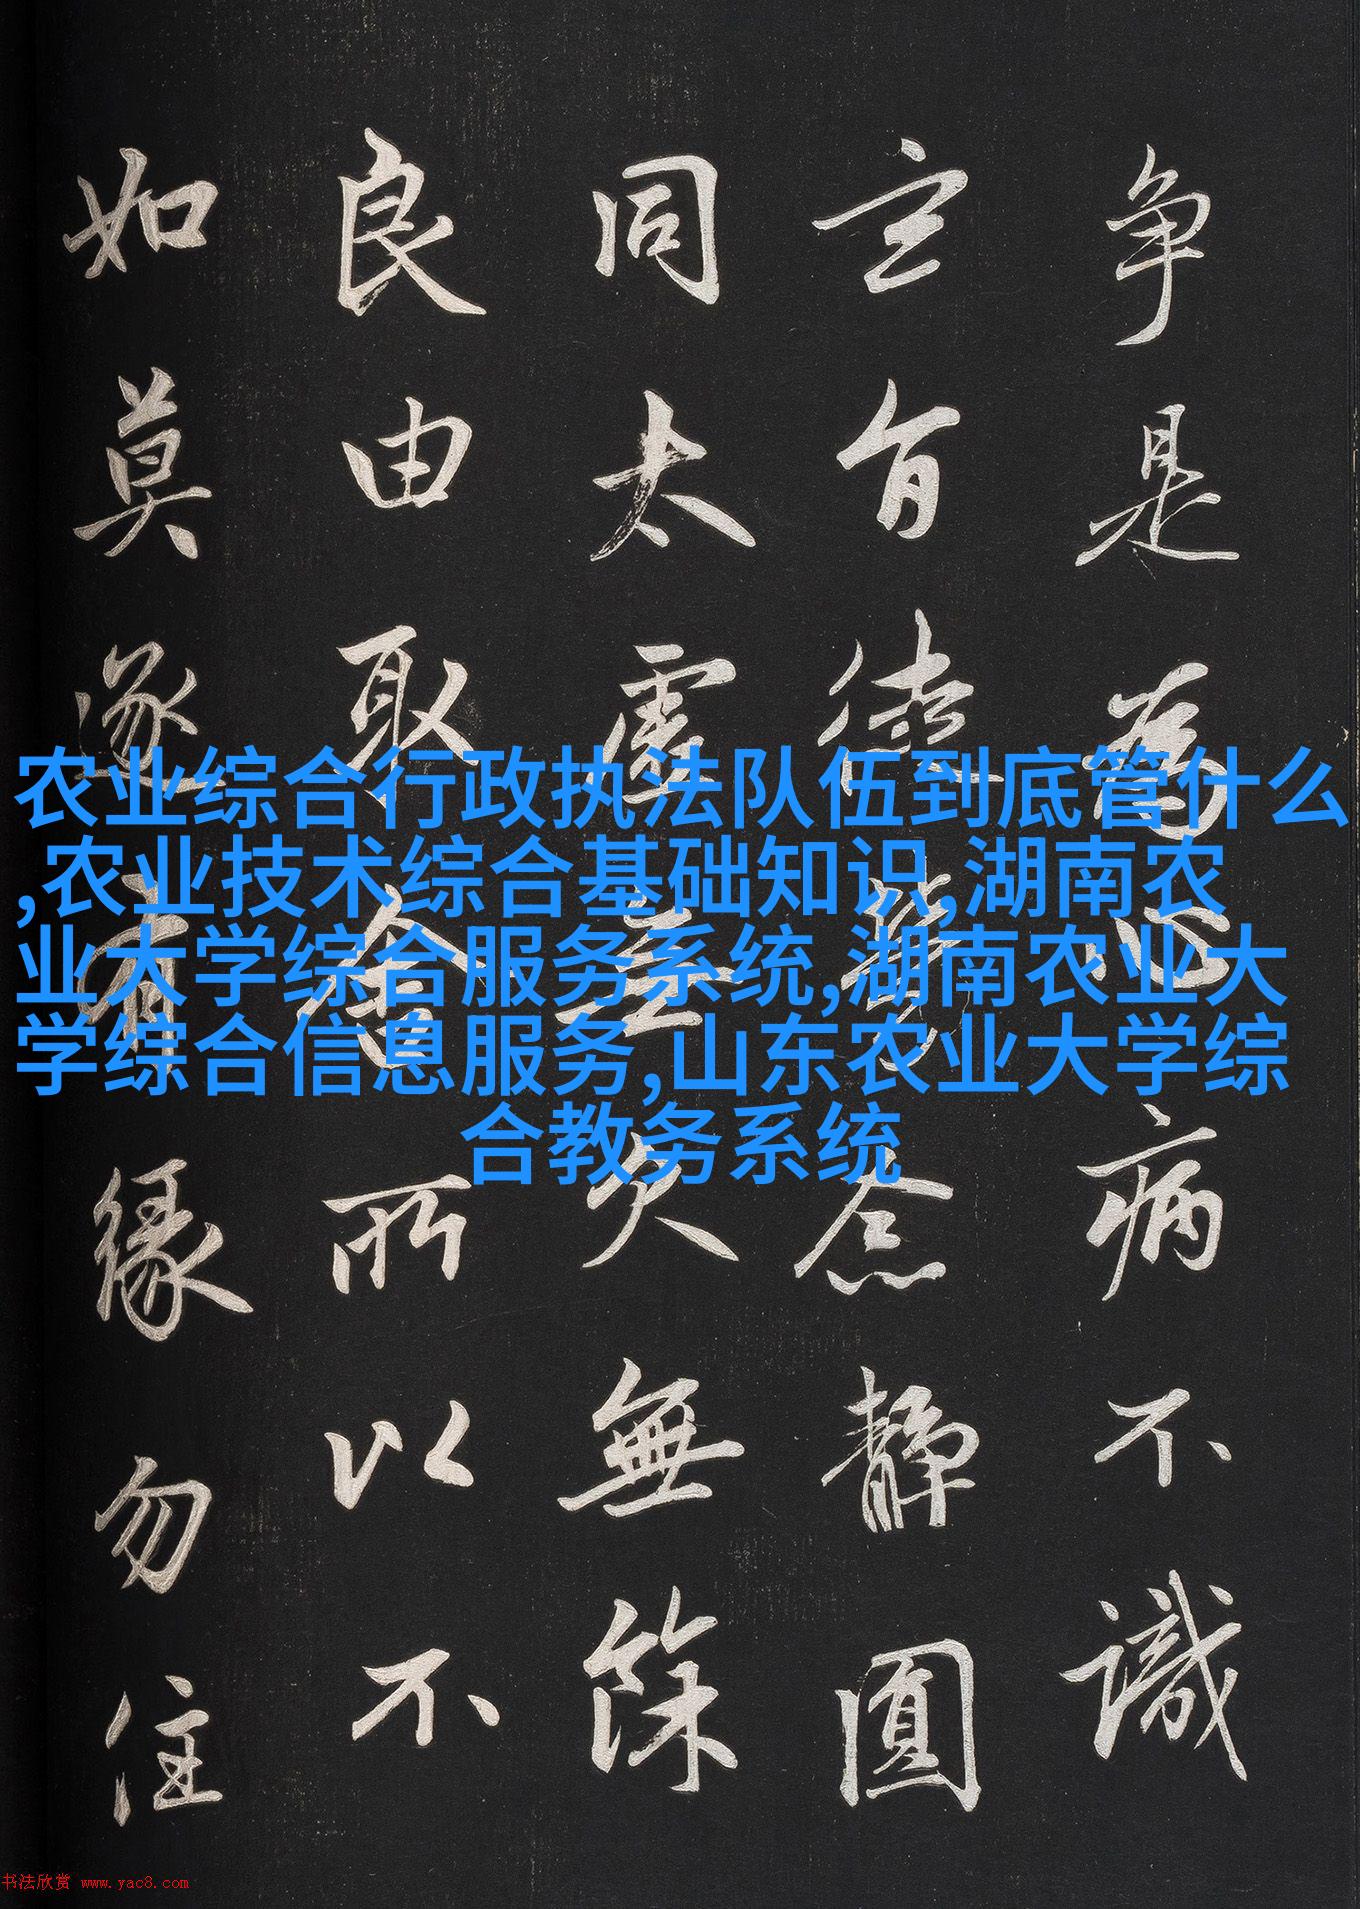 争是為心病不識
玄旨徒勞念静圓
同太虚無欠無餘
良由取舍所以不
如莫逐有縁勿住
农业综合行政执法队伍到底管什么
,农业技术综合基础知识,湖南农
业大学综合服务系统,湖南农业大
学综合信息服务,山东农业大学综
合教务系统
书法欣赏 www.yac8.com